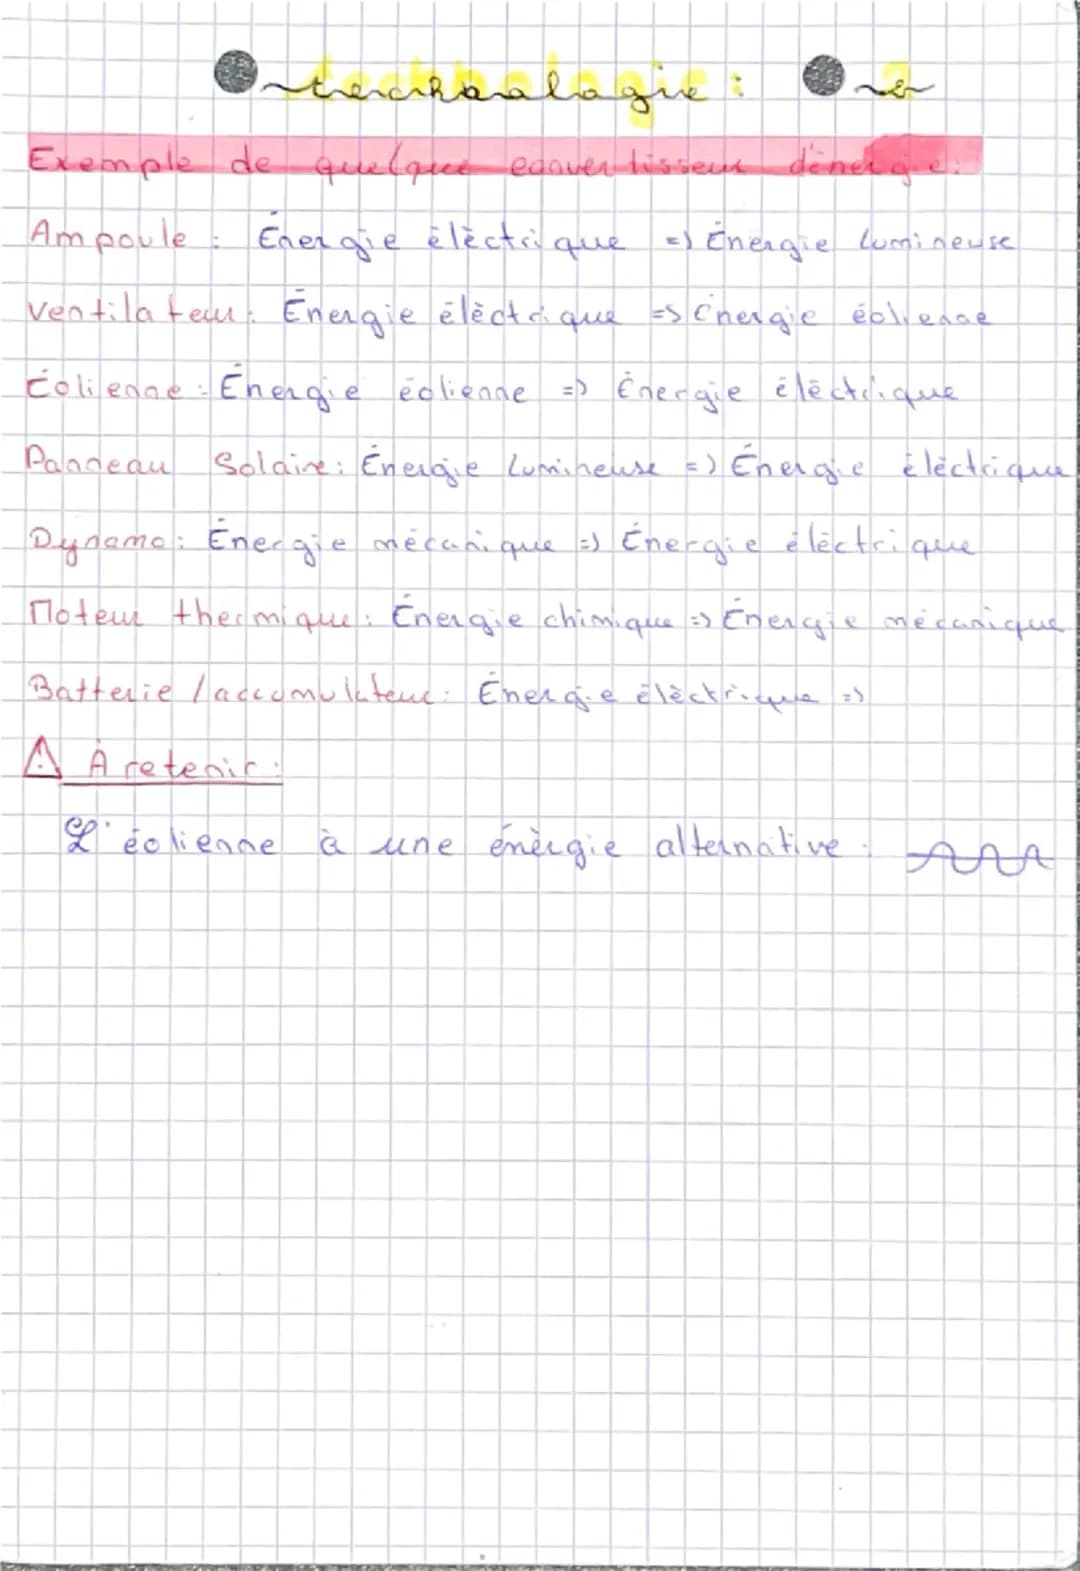 technologie :
Exemple de quelque convertisseur d'énergie.
Ampoule : Énergie élèctrique => Énergie lumineuse
Ventilateur : Énergie élèctrique => Énergie éolienne
Éolienne : Énergie éolienne => Énergie élèctrique
Panneau Solaire : Énergie lumineuse => Énergie élèctrique
Dynamo : Énergie mécanique => Énergie élèctrique
Moteur thermique : Énergie chimique => Énergie mécanique
Batterie / accumulateur : Énergie élèctrique =>
⚠ À retenir :
L'éolienne à une énèrgie alternative :